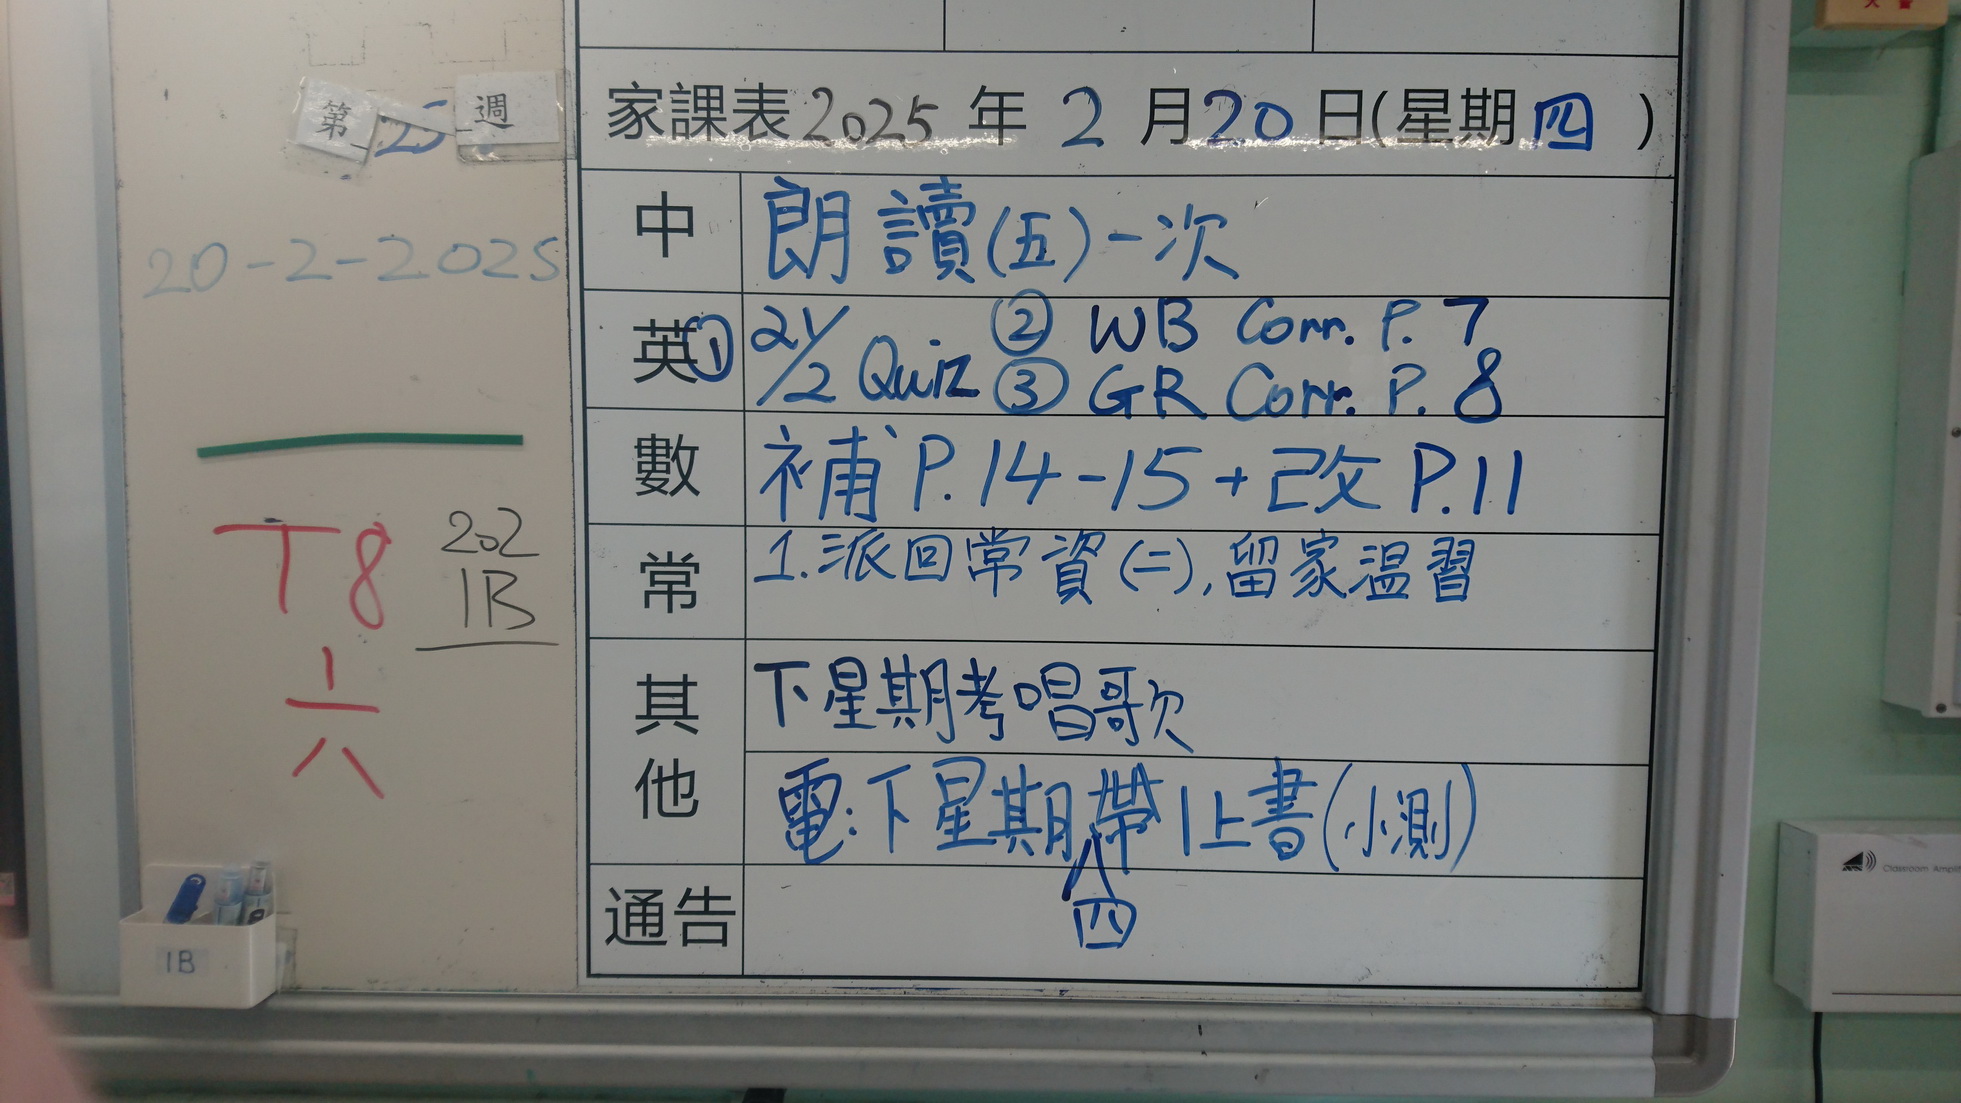 第 25 週
20-2-2025
T8
六
202
1B
1B
家課表 2025 年 2 月 20 日(星期 四 )
中 朗讀(五)一次
英 ① 21/2 Quiz ② WB Corr. P. 7
③ GR Corr. P. 8
數 補 P.14-15 + 改 P.11
常 1.派回常資(二),留家温習
其他 下星期考唱歌
電:下星期四帶1上書(小測)
通告
Classroom Ampli